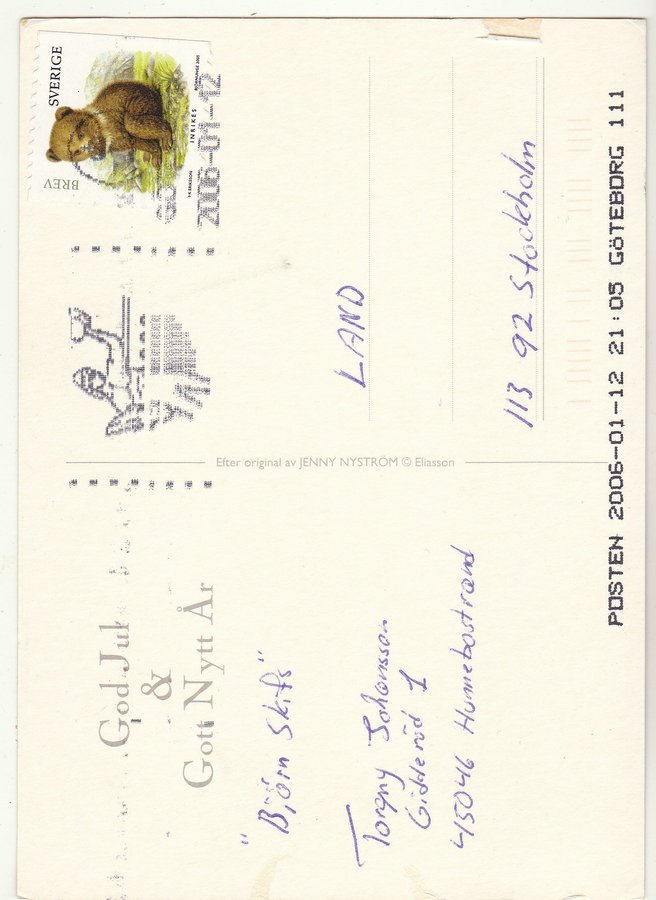 God Jul
&
Gott Nytt År
"Björn Skifs"
Torgny Johansson
Gidderöd 1
45046 Hunnebostrand
Efter original av JENNY NYSTRÖM © Eliasson
SVERIGE
BREV
INRIKES
2006-01-12
LAND
113 92 Stockholm
POSTEN 2006-01-12 21:05 GÖTEBORG 111